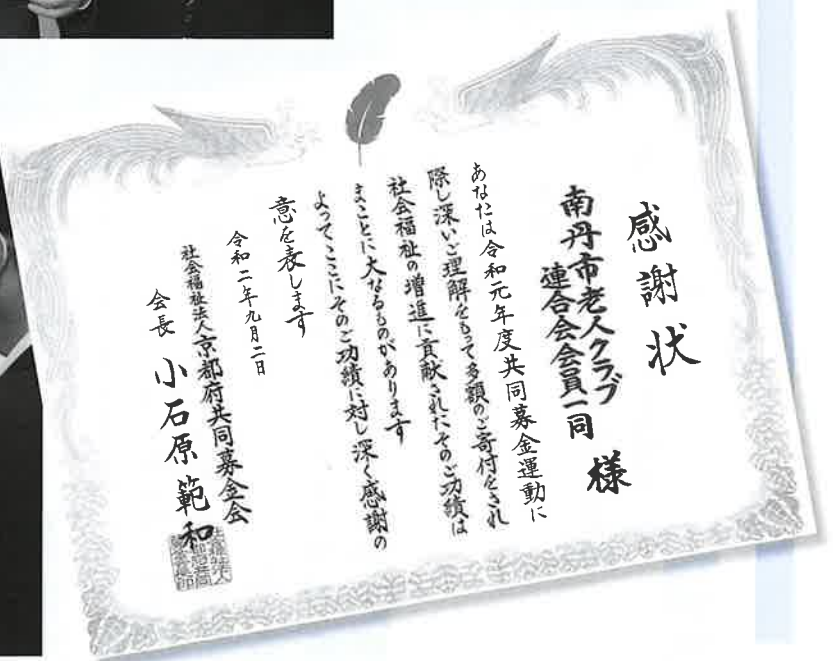 感謝状
南丹市老人クラブ
連合会会員一同 様
あなたは令和元年度共同募金運動に
際し深いご理解をもって多額のご寄付をされ
社会福祉の増進に貢献されたそのご功績は
まことに大なるものがあります
よってここにそのご功績に対し深く感謝の
意を表します
令和二年九月二日
社会福祉法人京都府共同募金会
会長 小石原範和